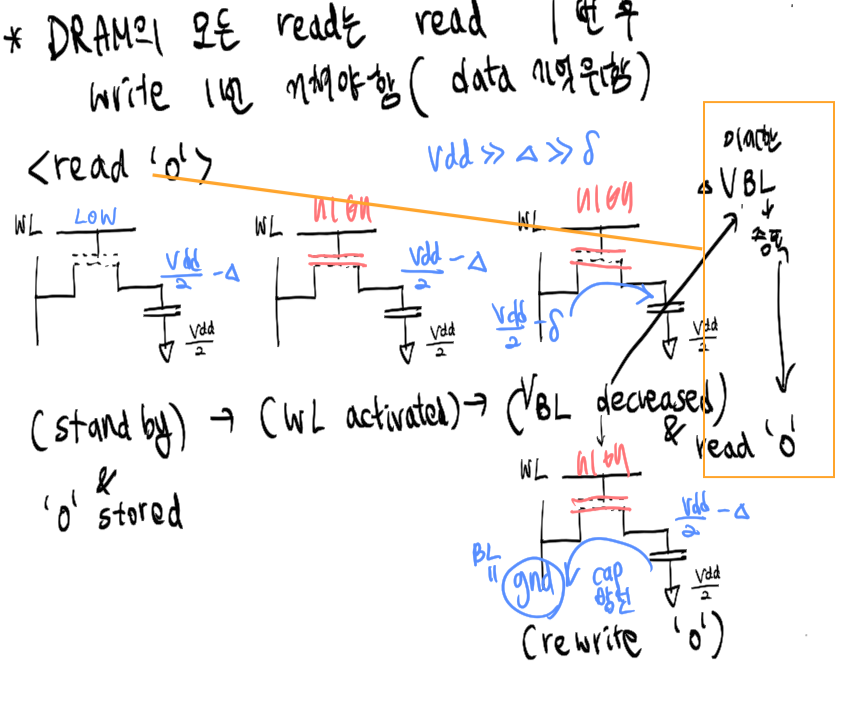 * DRAM의 모든 read는 read 1번 후
write 1번 거쳐야함 ( data 기억 못함)
<read '0'>
Vdd ≫ Δ ≫ δ
미세한
Δ VBL
↓
증폭
WL LOW
Vdd/2 - Δ
Vdd/2
WL HIGH
Vdd/2 - Δ
Vdd/2
WL HIGH
Vdd/2 - δ
Vdd/2
(stand by) → (WL activated) → (VBL decreased)
& '0' stored
& read '0'
WL HIGH
Vdd/2 - Δ
BL = gnd
cap 방전
Vdd/2
(rewrite '0')